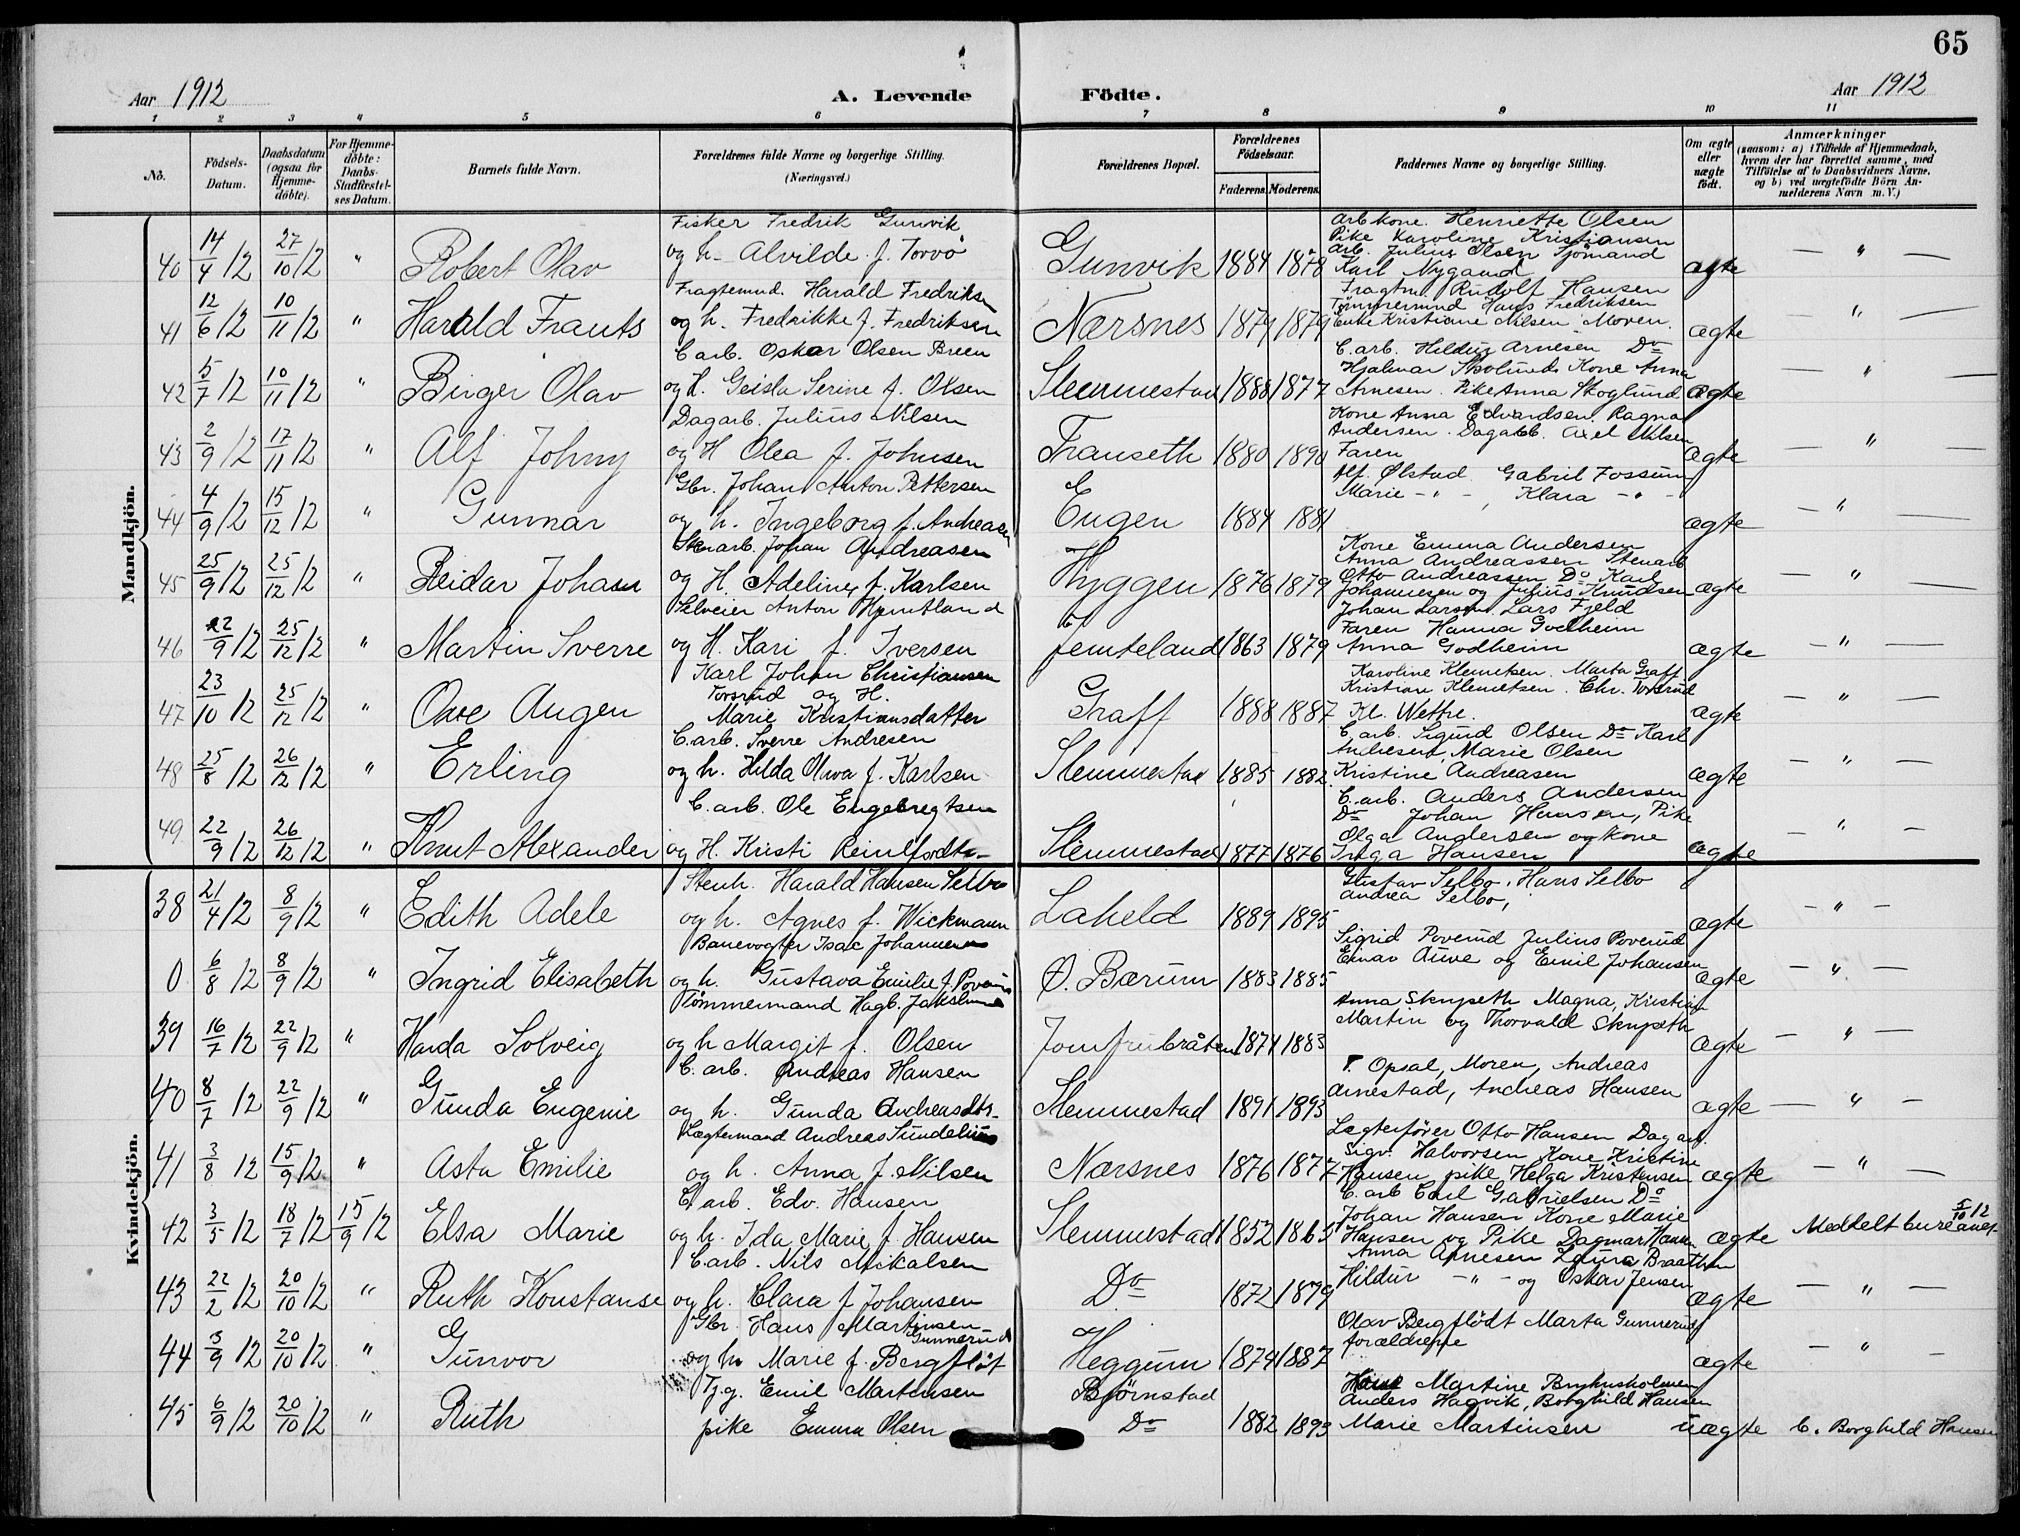 65
Aar 1912
A. Levende Födte.
Aar 1912
1 2 3 4 5 6 7 8 9 10 11
No.
Födsels-Datum.
Daabsdatum (ogsaa for Hjemme-döbte).
For Hjemme-döbte: Daabs-Stadfæstel-ses Datum.
Barnets fulde Navn.
Forældrenes fulde Navne og borgerlige Stilling. (Næringsvei.)
Forældrenes Bopæl.
Forældrenes Födselsaar.
Faderens. Moderens.
Faddernes Navne og borgerlige Stilling.
Om ægte eller uægte födt.
Anmærkninger
(saasom: a) i Tilfælde af Hjemmedaab, hvem der har forrettet samme, med Tilföielse af to Daabsvidners Navne, og b) ved uægtefödte Börn An-melderens Navn m. V.)
Mandkjön.
Fisker Fredrik Gunvik
40 14/4 12 27/10 12 " Robert Olav og h. Alvilde f. Torvö Gunvik 1884 1878 ægte — " —
Arbkone Henriette Olsen
Pike Karoline Kristiansen
Arb. Julius Olsen Sjömand
Karl Nygaard
Fragtemd. Harald Fredriksen
41 12/6 12 10/11 12 " Harald Frants og h. Fredrikke f. Fredriksen Nærsnes 1879 1879 ægte — " —
Fragtm. Rudolf Hansen
Tömmermnd Hans Fredriksen
Enke Kristiane Nilsen Moren.
C. arb. Oskar Olsen Breen
42 5/7 12 10/11 12 " Birger Olav og H. Geisla Serine f. Olsen Slemmestad 1888 1877 ægte — " —
C. arb. Hildur Arnesen Do
Hjalmar Skolunds Kone Anna
Arnesen. Pike Anna Skoglund
Dagarb. Julius Nilsen
43 2/9 12 17/11 12 " Alf Johny og H Olea f. Johnsen Franseth 1880 1890 ægte — " —
Kone Anna Edvardsen. Ragna
Andersen. Dagarb. Axel Nilsen
Faren
Gbr. Johan Anton Pettersen
44 4/9 12 15/12 12 " Gunnar og h. Ingeborg f. Andreasen Engen 1884 1881 ægte — " —
Alf. Ølstad Gabriel Fossum
Marie - " -, Klara - " -
Stenarb. Johan Andreasen
45 25/9 12 25/12 12 " Reidar Johan og H. Adeline f. Karlsen Hyggen 1876 1879 ægte — " —
Kone Emma Andersen
Anna Andreassen Stenarb
Otto Andreassen Do Karl
Johannesen og Julius Knudsen
Selveier Anton
46 22/9 12 25/12 12 " Martin Sverre og H. Kari f. Iversen Jemteland 1863 1879 ægte — " —
Johan Larsen. Lars Fjeld
Faren Hanna Godheim
Anna Godheim
Karl Johan Christiansen
Torsrud og H.
47 23/10 12 25/12 12 " Ove Augen Marie Kristiansdatter Graff 1888 1887 ægte — " —
Karoline Klemetsen. Marta Graff
Kristian Klemetsen. Chr. Torsrud
Kl. Wettre.
C. arb. Sverre Andresen
48 25/8 12 26/12 12 " Erling og h. Hilda Olava f. Karlsen Slemmestad 1885 1882 ægte — " —
C. arb. Sigurd Olsen Do Karl
Andresen, Marie Olsen
Kristine Andreasen
C. arb. Ole Engebregtsen
49 22/9 12 26/12 12 " Knut Alexander og H. Kristi Slemmestad 1877 1876 ægte — " —
C. arb. Anders Andersen
Do Johan Hansen, Pike
Olga Andersen og Kone
Inga Hansen
Kvindekjön.
Stenh. Harald Hansen Selbo
38 21/4 12 8/9 12 " Edith Adele og h. Agnes f. Wickmann Laheld 1889 1895 ægte — " —
Gustav Selbo, Hans Selbo
Andrea Selbo,
Banevogter Isac Johannesen
0 6/8 12 8/9 12 " Ingrid Elisabeth og h. Gustava Emilie f. Poverud Ø. Bærum 1883 1885 ægte — " —
Sigrid Poverud Julius Poverud
Einar Auve og Emil Johansen
Tömmermand Hagb.
39 16/7 12 22/9 12 " Harda Solveig og h Margit f. Olsen Jomfrubråten 1874 1883 ægte — " —
Anna Skrypeth Magna, Kristian
Martin og Thorvald Skrypeth
C. arb. Andreas Hansen
40 8/7 12 22/9 12 " Gunda Eugenie og h. Gunda Andreasdtr. Slemmestad 1891 1893 ægte — " —
T. Opsal, Moren, Andreas
Arnestad, Andreas Hansen
Lægtermand Andreas Sundelius
41 3/8 12 15/9 12 " Asta Emilie og h. Anna f. Nilsen Nærsnes 1876 1877 ægte — " —
Lægterförer Otto Hansen Dagarb.
Sigv. Halvorsen Kone Kristine
Hansen pike Helga Kristensen
C. arb. Edv. Hansen
42 3/5 12 18/7 12 15/9 12 Elsa Marie og h. Ida Marie f. Hansen Slemmestad 1852 1865 ægte
C. arb Carl Gabrielsen Do
Johan Hansen Kone Marie
Hansen og Pike Dagmar Hansen
5/10 12
Meddelt
C. arb. Nils Mikalsen
43 22/2 12 20/10 12 " Ruth Konstanse og h. Clara f Johansen Do 1872 1879 ægte — " —
Anna Arnesen Laura Braathen
Hildur - " - og Oskar Jensen
Gbr. Hans Martinsen Gunnerud
44 5/9 12 20/10 12 " Gunvor og h. Marie f. Bergflöt Heggum 1874 1887 ægte — " —
Olav Bergflödt Marta Gunnerud
forældrene
Tjg. Emil Martinsen Björnstad
45 6/9 12 20/10 12 " Ruth pike Emma Olsen Do 1882 1893 uægte C. Borghild Hansen
Martine Brynusholmen
Anders Hagvik, Borghild Hansen
Marie Martinsen